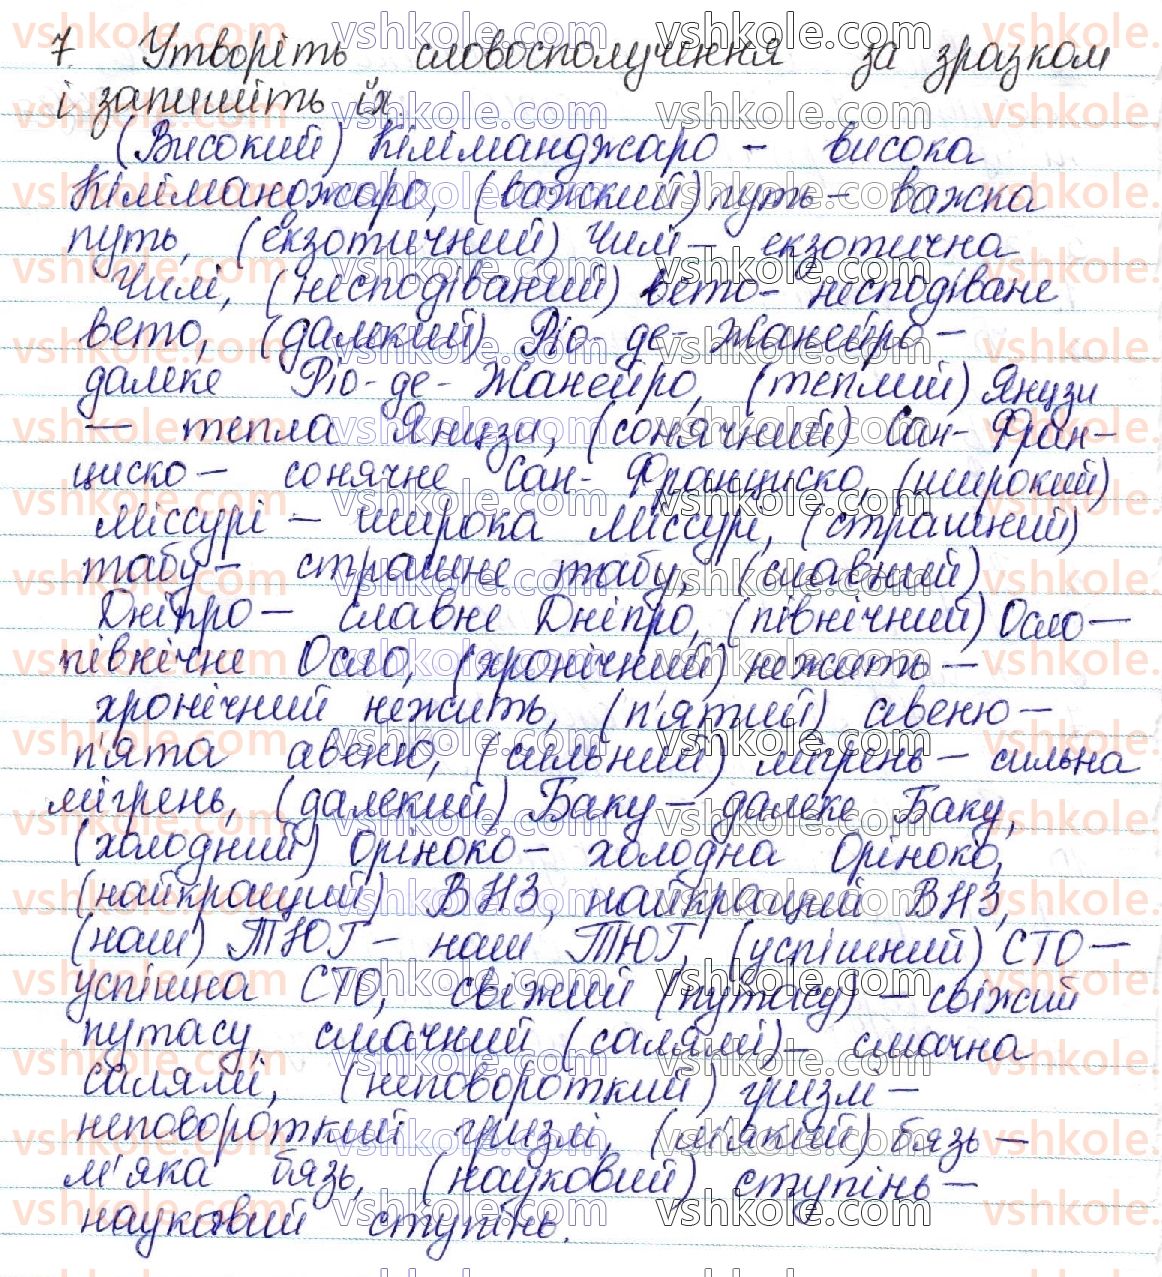 7. Утворіть словосполучення за зразком
і запишіть їх.
(Високий) Кіліманджаро – висока
Кіліманджаро, (важкий) путь – важка
путь, (екзотичний) Чилі – екзотична
Чилі, (несподіваний) вето – несподіване
вето, (далекий) Ріо-де-Жанейро –
далеке Ріо-де-Жанейро, (теплий) Янцзи
– тепла Янцзи, (сонячний) Сан-Фран-
циско – сонячне Сан-Франциско, (широкий)
Міссурі – широка Міссурі, (страшний)
табу – страшне табу, (славний)
Дніпро – славне Дніпро, (північний) Осло –
північне Осло, (хронічний) нежить –
хронічний нежить, (п'ятий) авеню –
п'ята авеню, (сильний) мігрень – сильна
мігрень, (далекий) Баку – далеке Баку,
(холодний) Оріноко – холодна Оріноко,
(найкращий) ВНЗ, найкращий ВНЗ,
(наш) ТЮГ – наш ТЮГ, (успішний) СТО –
успішна СТО, свіжий (путасу) – свіжий
путасу, смачний (салямі) – смачна
салямі, (неповороткий) гризлі –
неповороткий гризлі, (м'який) бязь –
м'яка бязь, (науковий) ступінь –
науковий ступінь.